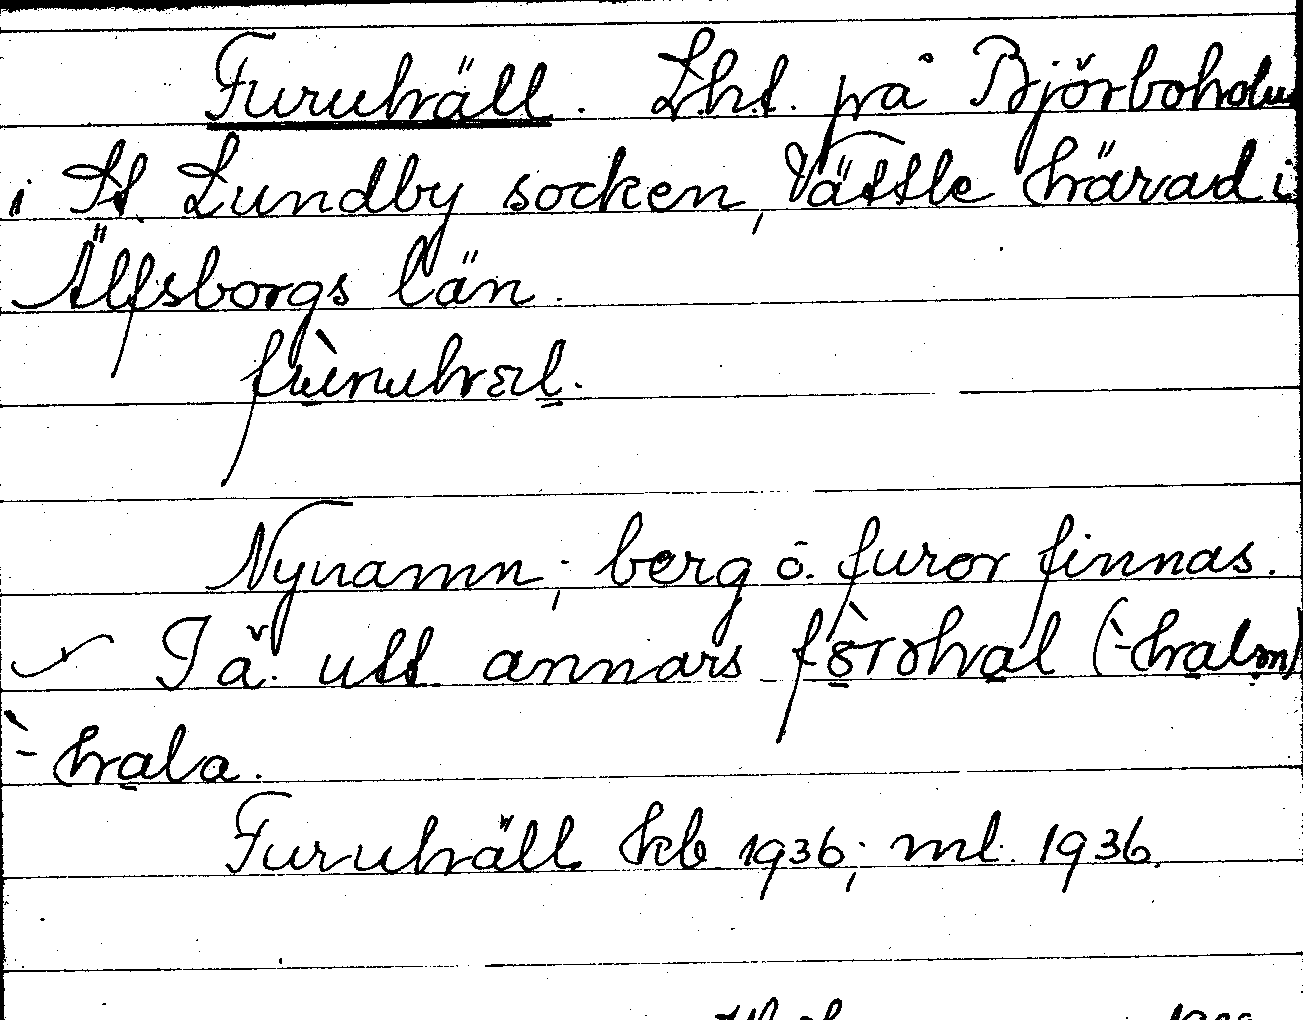 Furuhäll. Lht. på Björboholm
i St. Lundby socken, Vättle härad i
Älfsborgs län.
Nynamn; berg o. furor finnas.
I ä. utt. annars
Furuhäll hkb 1936; ml. 1936.